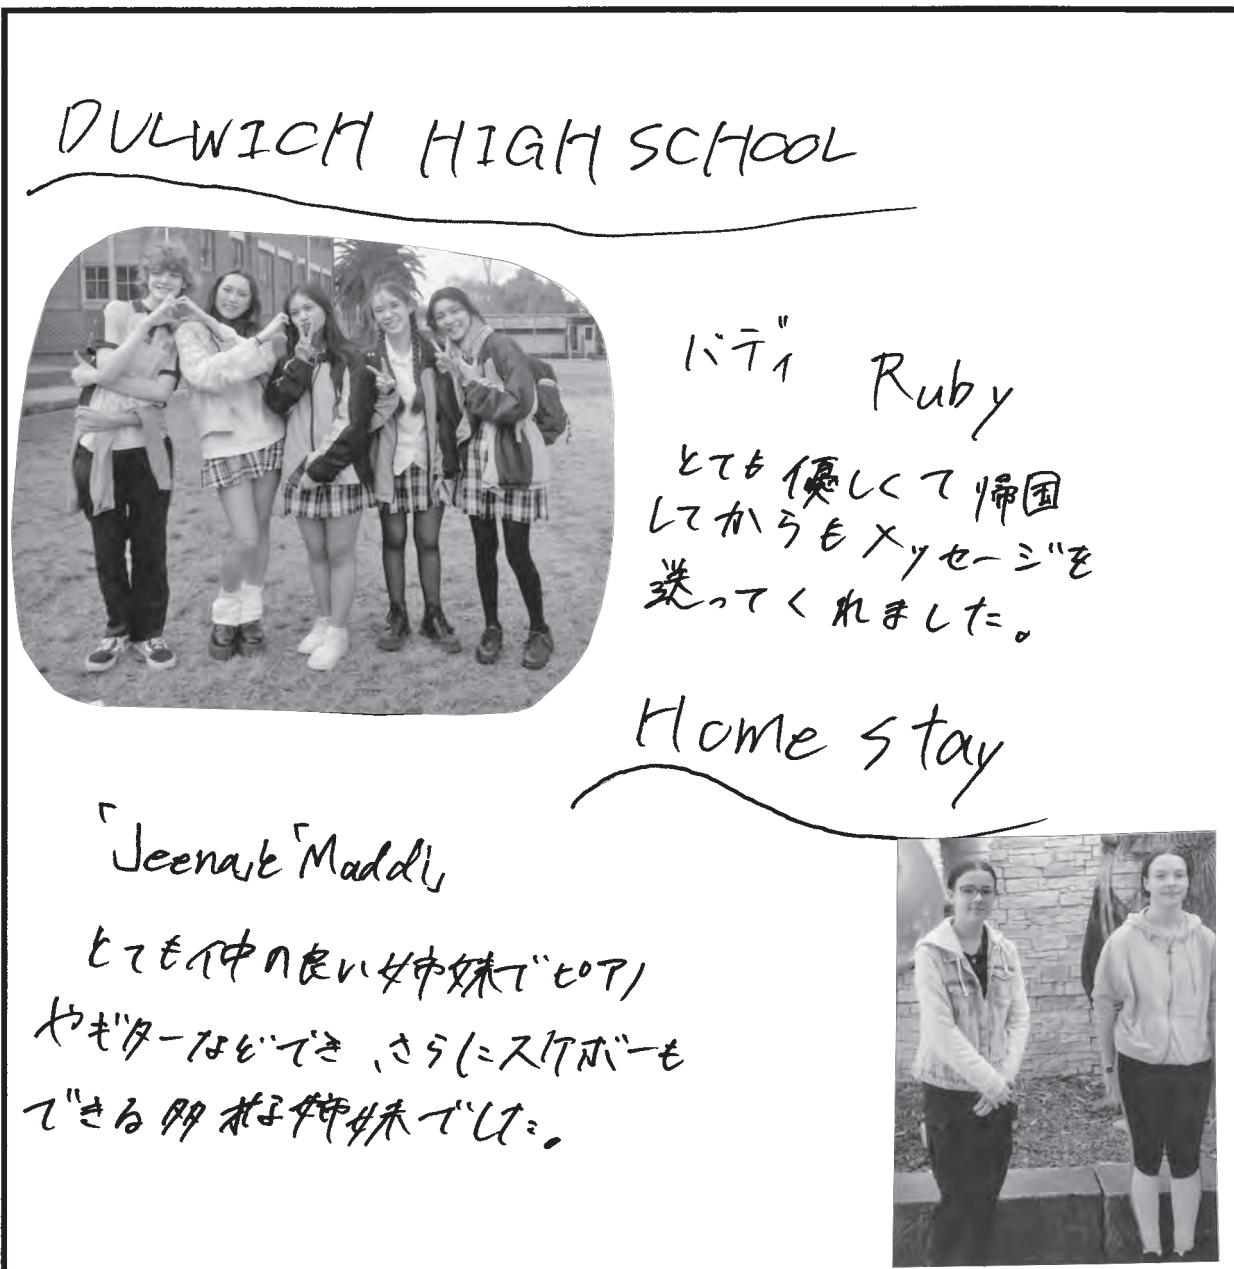 DULWICH HIGH SCHOOL
バディ Ruby
とても優しくて帰国
してからもメッセージを
送ってくれました。
Home stay
「Jeena」と「Maddi」
とても仲の良い姉妹でピアノ
やギターなどでき、さらにスケボーも
できる多才な姉妹でした。